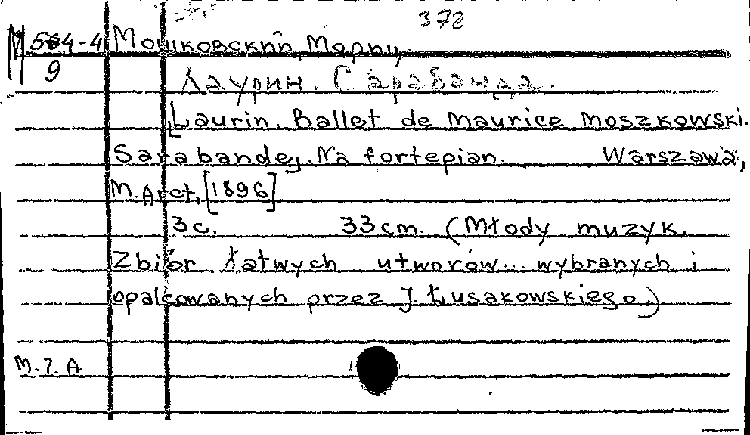 372
М 564-4 Мошковский, Мориц
9
Лаурин. Сарабанда.
Laurin. Ballet de Maurice Moszkowski.
Sarabande. Na fortepian. Warszawa,
M. Arct, [1896]
3 c. 33 cm. (Młody muzyk.
Zbiór łatwych utworów... wybranych i
opalcowanych przez J. Łusakowskiego.)
М. 7. А